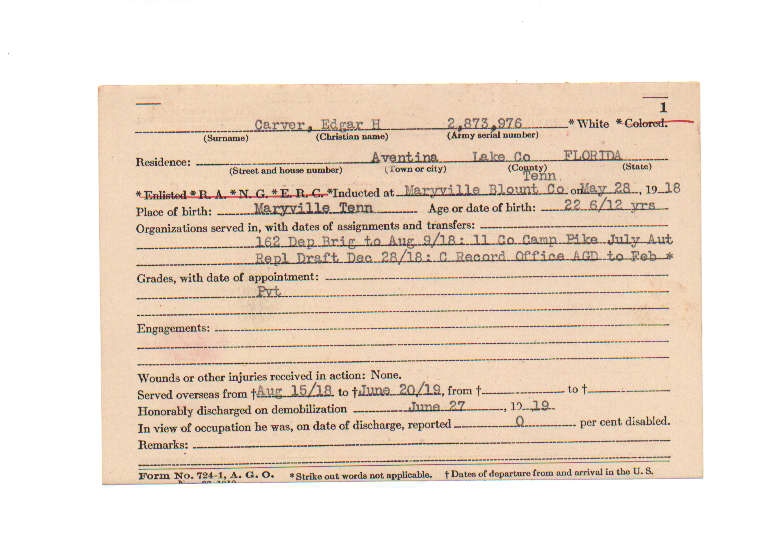 1
Carver, Edgar H 2,873,976 * White * Colored.
(Surname) (Christian name) (Army serial number)
Residence: Aventina Lake Co FLORIDA
(Street and house number) (Town or city) (County) (State)
Tenn
* Enlisted * R. A. * N. G. * E. R. C. *Inducted at Maryville Blount Co. on May 28, 1918
Place of birth: Maryville Tenn Age or date of birth: 22 6/12 yrs
Organizations served in, with dates of assignments and transfers:
162 Dep Brig to Aug 9/18: 11 Co Camp Pike July Aut
Repl Draft Dec 28/18: C Record Office AGD to Feb *
Grades, with date of appointment:
Pvt
Engagements:
Wounds or other injuries received in action: None.
Served overseas from †Aug 15/18 to †June 20/19, from † to †
Honorably discharged on demobilization June 27, 1919
In view of occupation he was, on date of discharge, reported 0 per cent disabled.
Remarks:
Form No. 724-1, A. G. O. *Strike out words not applicable. †Dates of departure from and arrival in the U. S.